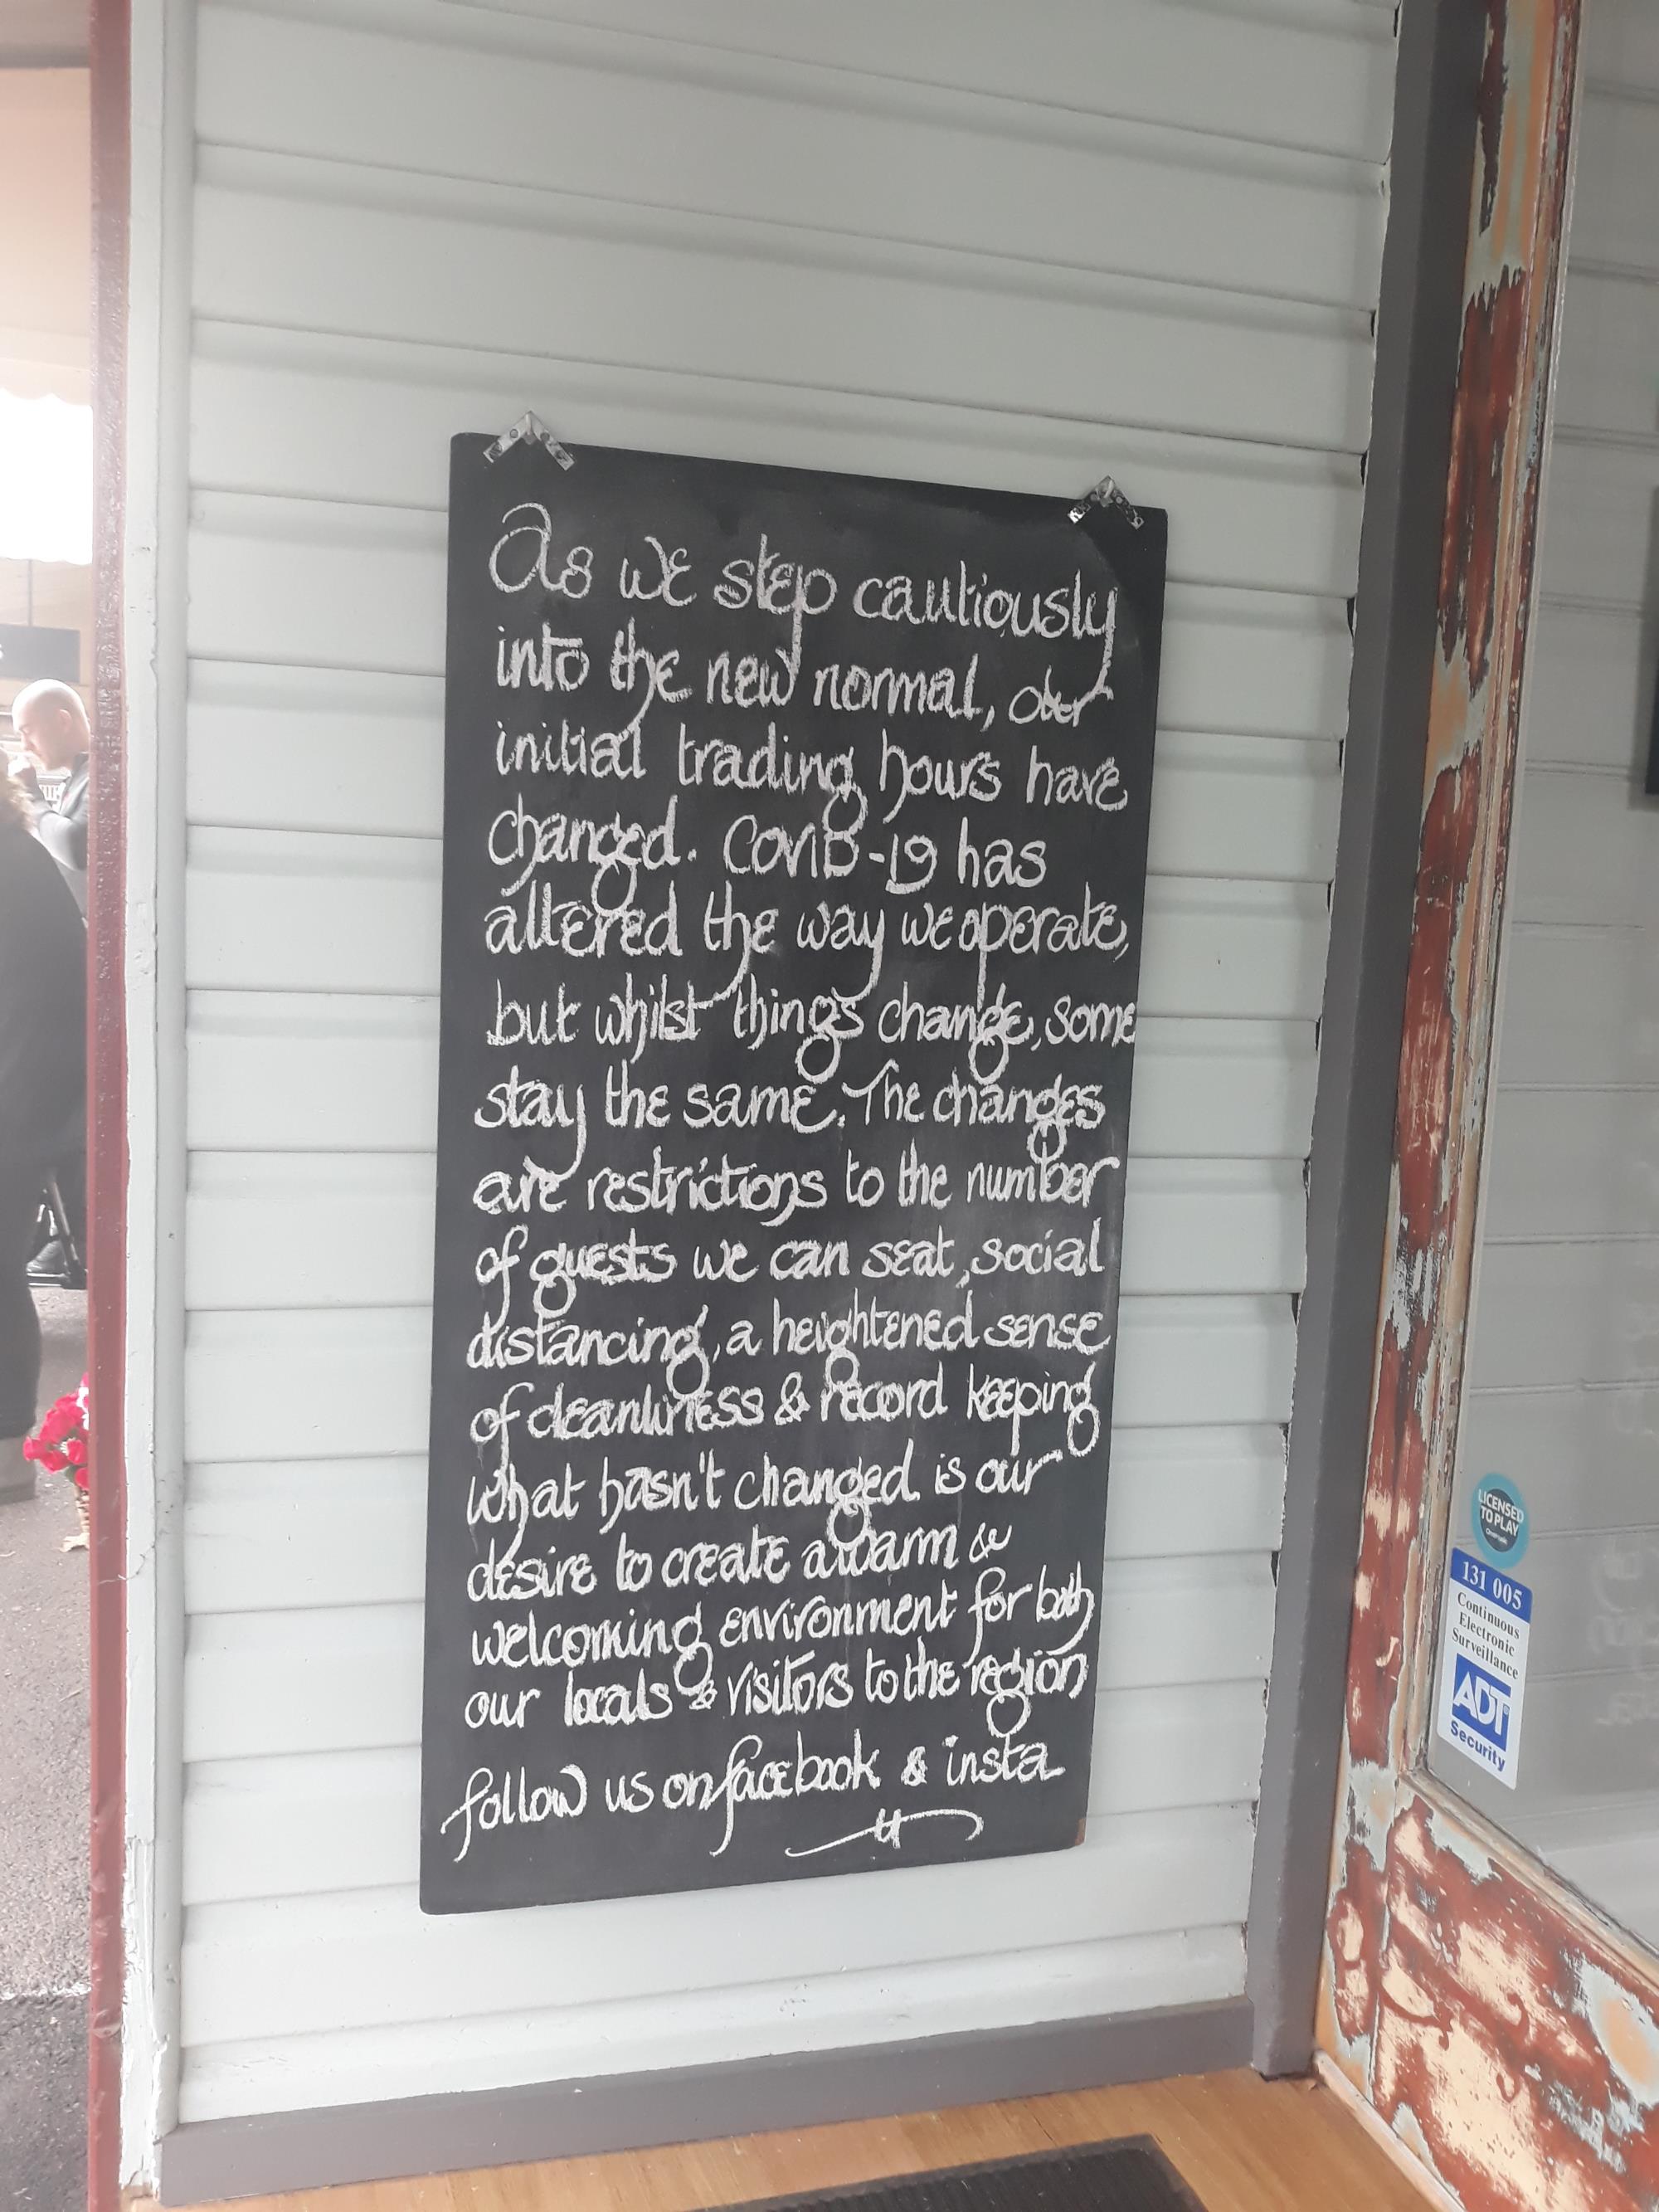 As we step cautiously
into the new normal, our
initial trading hours have
changed. COVID-19 has
altered the way we operate,
but whilst things change, some
stay the same. The changes
are restrictions to the number
of guests we can seat, social
distancing, a heightened sense
of cleanliness & record keeping
what hasn't changed is our
desire to create a warm &
welcoming environment for both
our locals & visitors to the region
follow us on facebook & insta
LICENSED
TO PLAY
OneMusic
131 005
Continuous
Electronic
Surveillance
ADT
Security